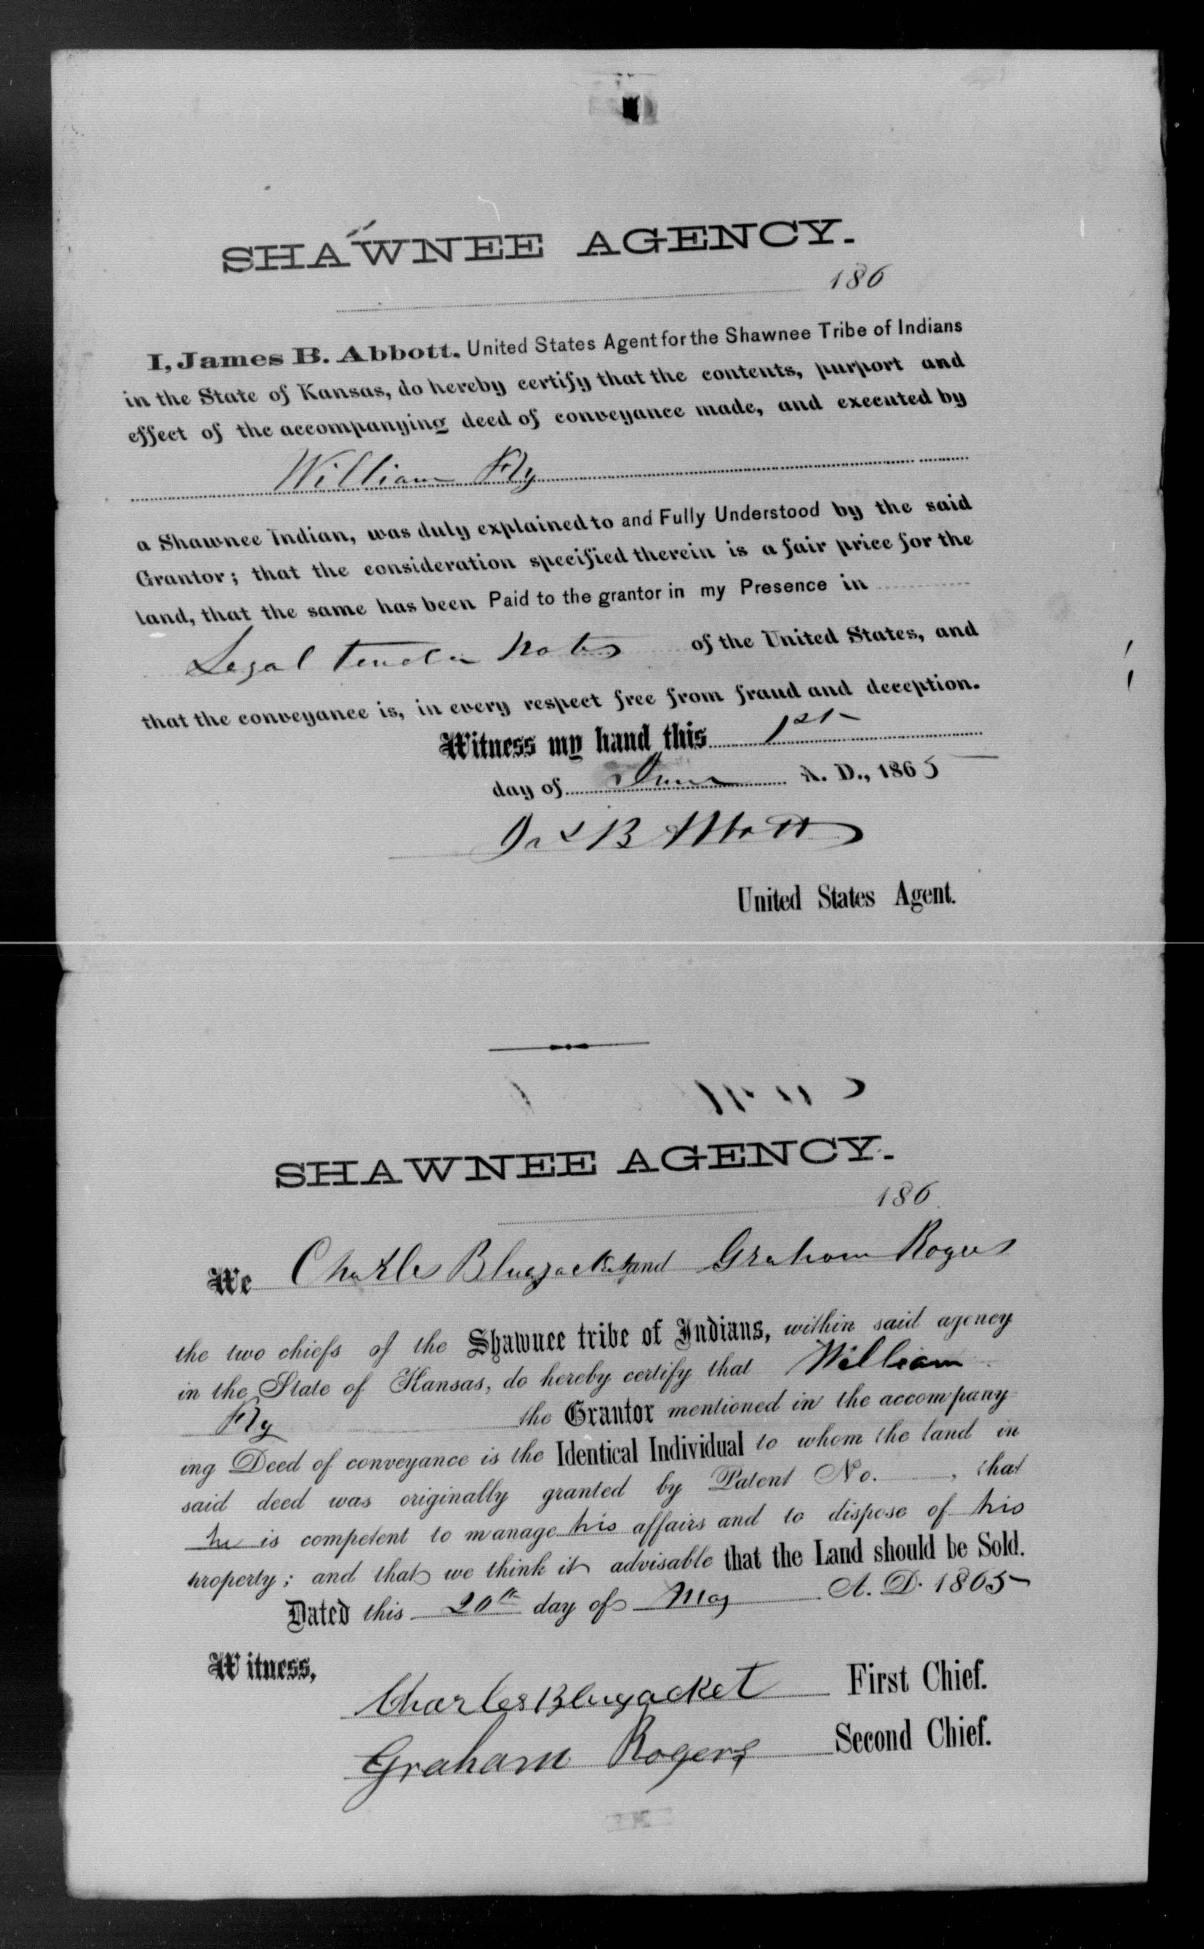 SHAWNEE AGENCY.
186
I, James B. Abbott, United States Agent for the Shawnee Tribe of Indians
in the State of Kansas, do hereby certify that the contents, purport and
effect of the accompanying deed of conveyance made, and executed by
William Fly
a Shawnee Indian, was duly explained to and Fully Understood by the said
Grantor; that the consideration specified therein is a fair price for the
land, that the same has been Paid to the grantor in my Presence in
Legal tender Notes of the United States, and
that the conveyance is, in every respect free from fraud and deception.
Witness my hand this 1st
day of June A. D., 1865
Jas B Abbott
United States Agent.
SHAWNEE AGENCY.
186
We Charles Bluejacket and Graham Rogers
the two chiefs of the Shawnee tribe of Indians, within said agency
in the State of Kansas, do hereby certify that William
Fly the Grantor mentioned in the accompany-
ing Deed of conveyance is the Identical Individual to whom the land in
said deed was originally granted by Patent No. , that
he is competent to manage his affairs and to dispose of his
property; and that we think it advisable that the Land should be Sold.
Dated this 20th day of May A. D. 1865
Witness,
Charles Bluejacket First Chief.
Graham Rogers Second Chief.